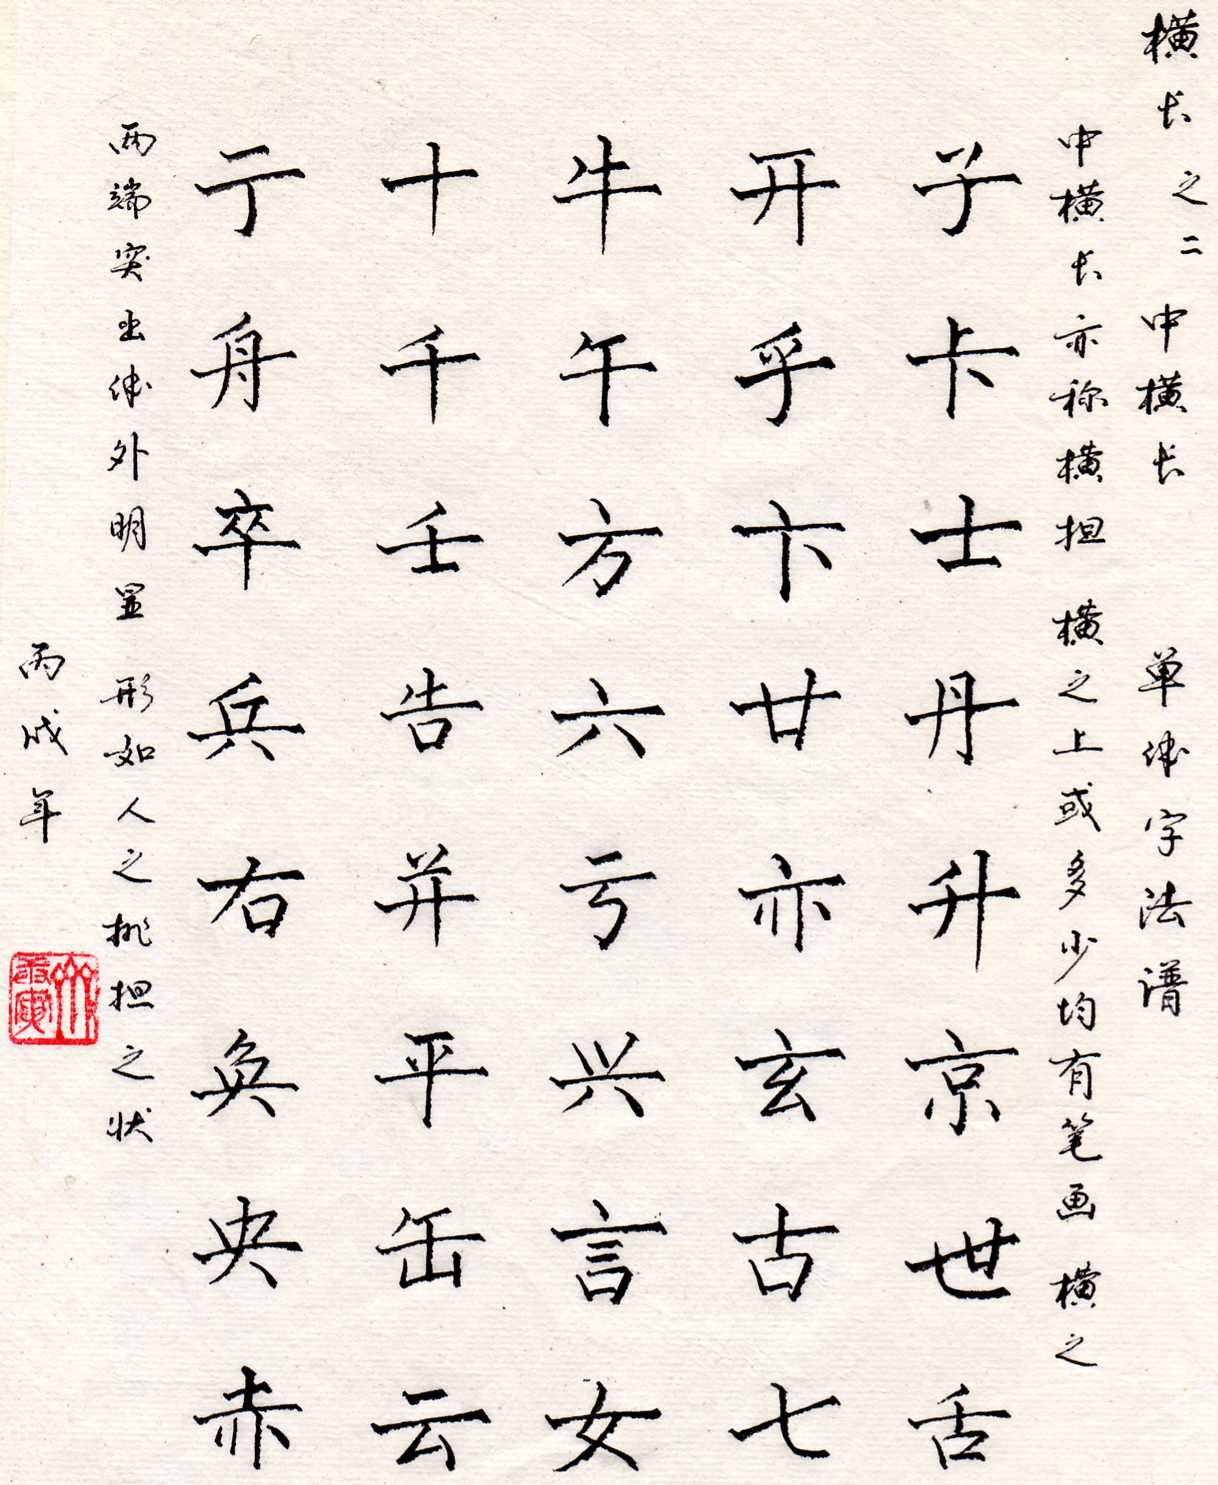 横长之二 中横长 单体字法谱
中横长亦称横担 横之上或多少均有笔画 横之
子卡士丹升京世舌
开乎卞廿亦玄古七
牛午方六亏兴言女
十千壬告并平缶云
亍舟卒兵右奂央赤
两端突出体外明显 形如人之挑担之状
丙戌年